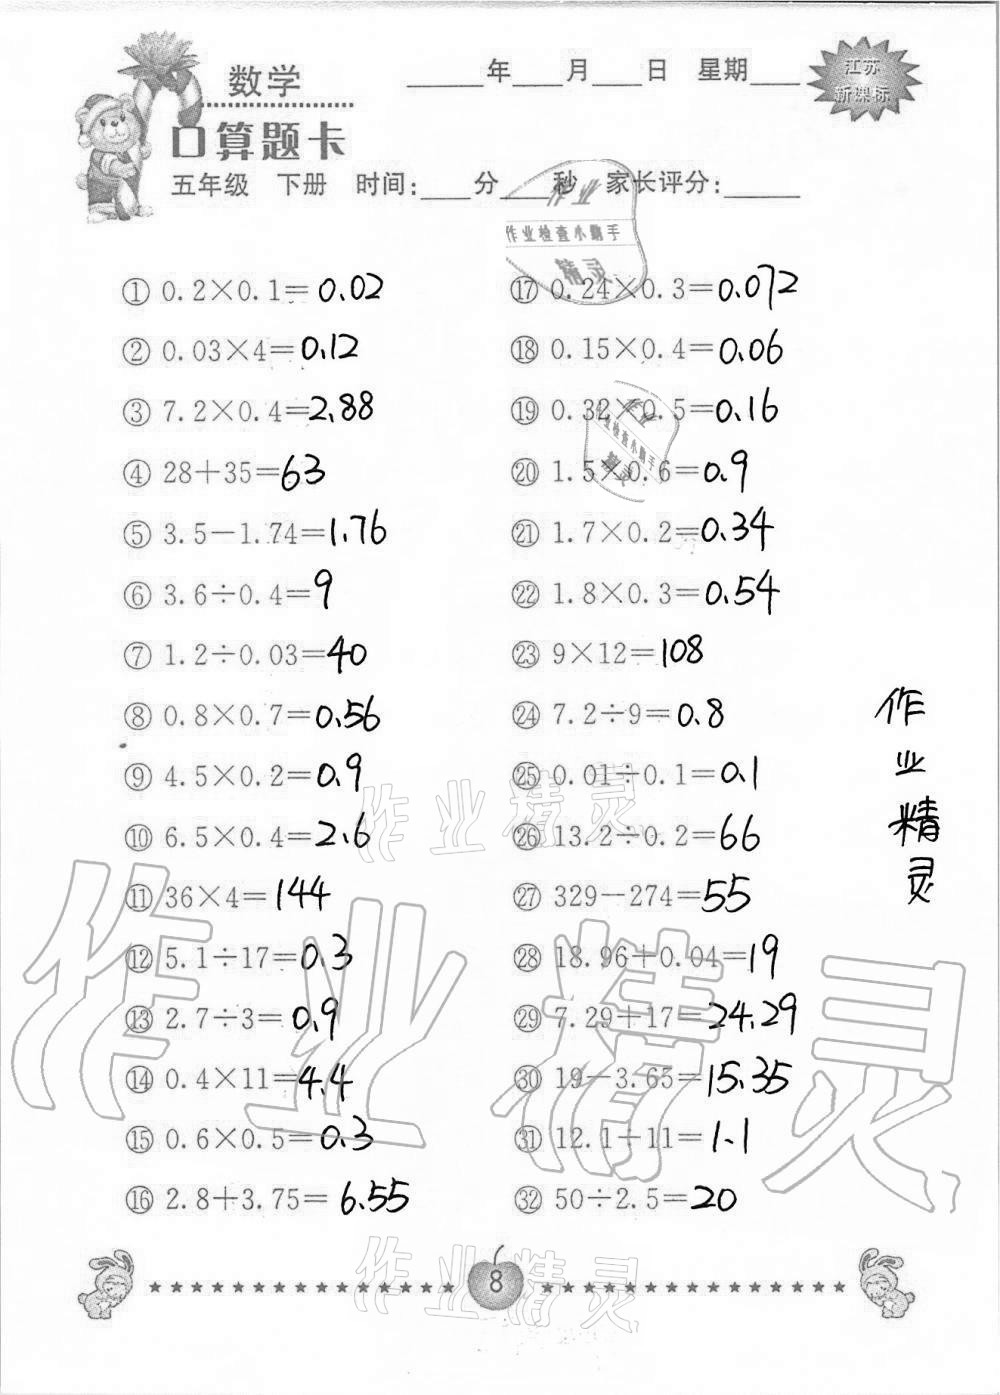 数学
____年____月____日 星期____
江苏
新课标
口算题卡
五年级 下册 时间:____分____秒 家长评分:____
作业
作业检查小助手
精灵
① 0.2×0.1=0.02
② 0.03×4=0.12
③ 7.2×0.4=2.88
④ 28+35=63
⑤ 3.5-1.74=1.76
⑥ 3.6÷0.4=9
⑦ 1.2÷0.03=40
⑧ 0.8×0.7=0.56
⑨ 4.5×0.2=0.9
⑩ 6.5×0.4=2.6
⑪ 36×4=144
⑫ 5.1÷17=0.3
⑬ 2.7÷3=0.9
⑭ 0.4×11=4.4
⑮ 0.6×0.5=0.3
⑯ 2.8+3.75=6.55
⑰ 0.24×0.3=0.072
⑱ 0.15×0.4=0.06
⑲ 0.32×0.5=0.16
⑳ 1.5×0.6=0.9
㉑ 1.7×0.2=0.34
㉒ 1.8×0.3=0.54
㉓ 9×12=108
㉔ 7.2÷9=0.8
㉕ 0.01÷0.1=0.1
㉖ 13.2÷0.2=66
㉗ 329-274=55
㉘ 18.96+0.04=19
㉙ 7.29+17=24.29
㉚ 19-3.65=15.35
㉛ 12.1÷11=1.1
㉜ 50÷2.5=20
作业精灵
作业精灵
作业精灵
作业精灵
8